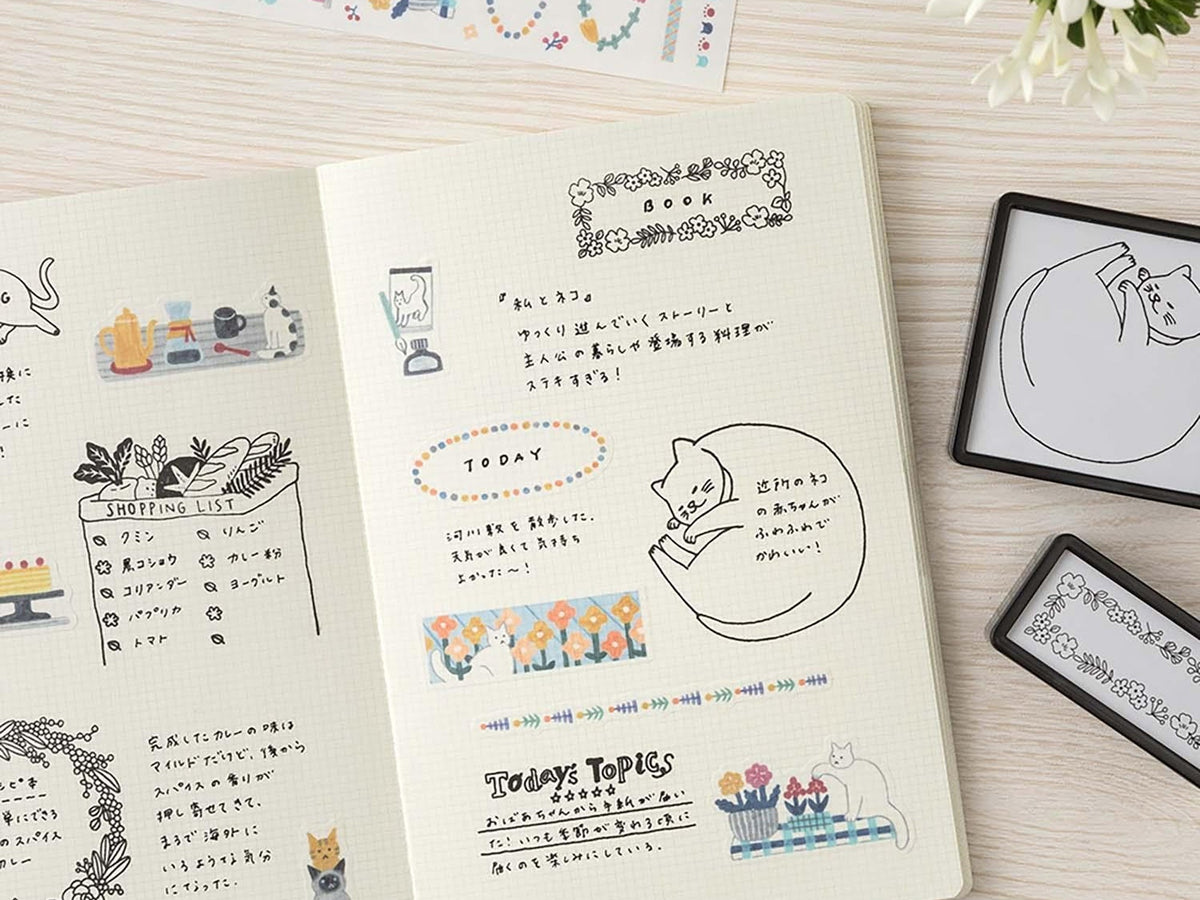 G
換に
した
ーに
!
SHOPPING LIST
クミン
りんご
黒コショウ
カレー粉
コリアンダー
ヨーグルト
パプリカ
トマト
シピ本
単にできる
のスパイス
カレー
完成したカレーの味は
マイルドだけど、後から
スパイスの香りが
押し寄せてきて、
まるで海外に
いるような気分
になった.
BOOK
『私とネコ』
ゆっくり進んでいくストーリーと
主人公の暮らしや登場する料理が
ステキすぎる!
TODAY
河川敷を散歩した.
天気が良くて気持ち
よかった〜!
近所のネコ
の赤ちゃんが
ふわふわで
かわいい!
Today's Topics
おばあちゃんから手紙が届い
た!いつも季節が変わる頃に
届くのを楽しみにしている.